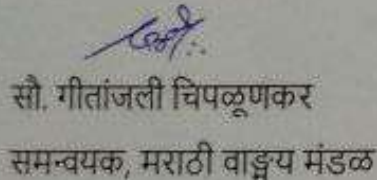 सौ. गीतांजली चिपळूणकर
समन्वयक, मराठी वाङ्मय मंडळ